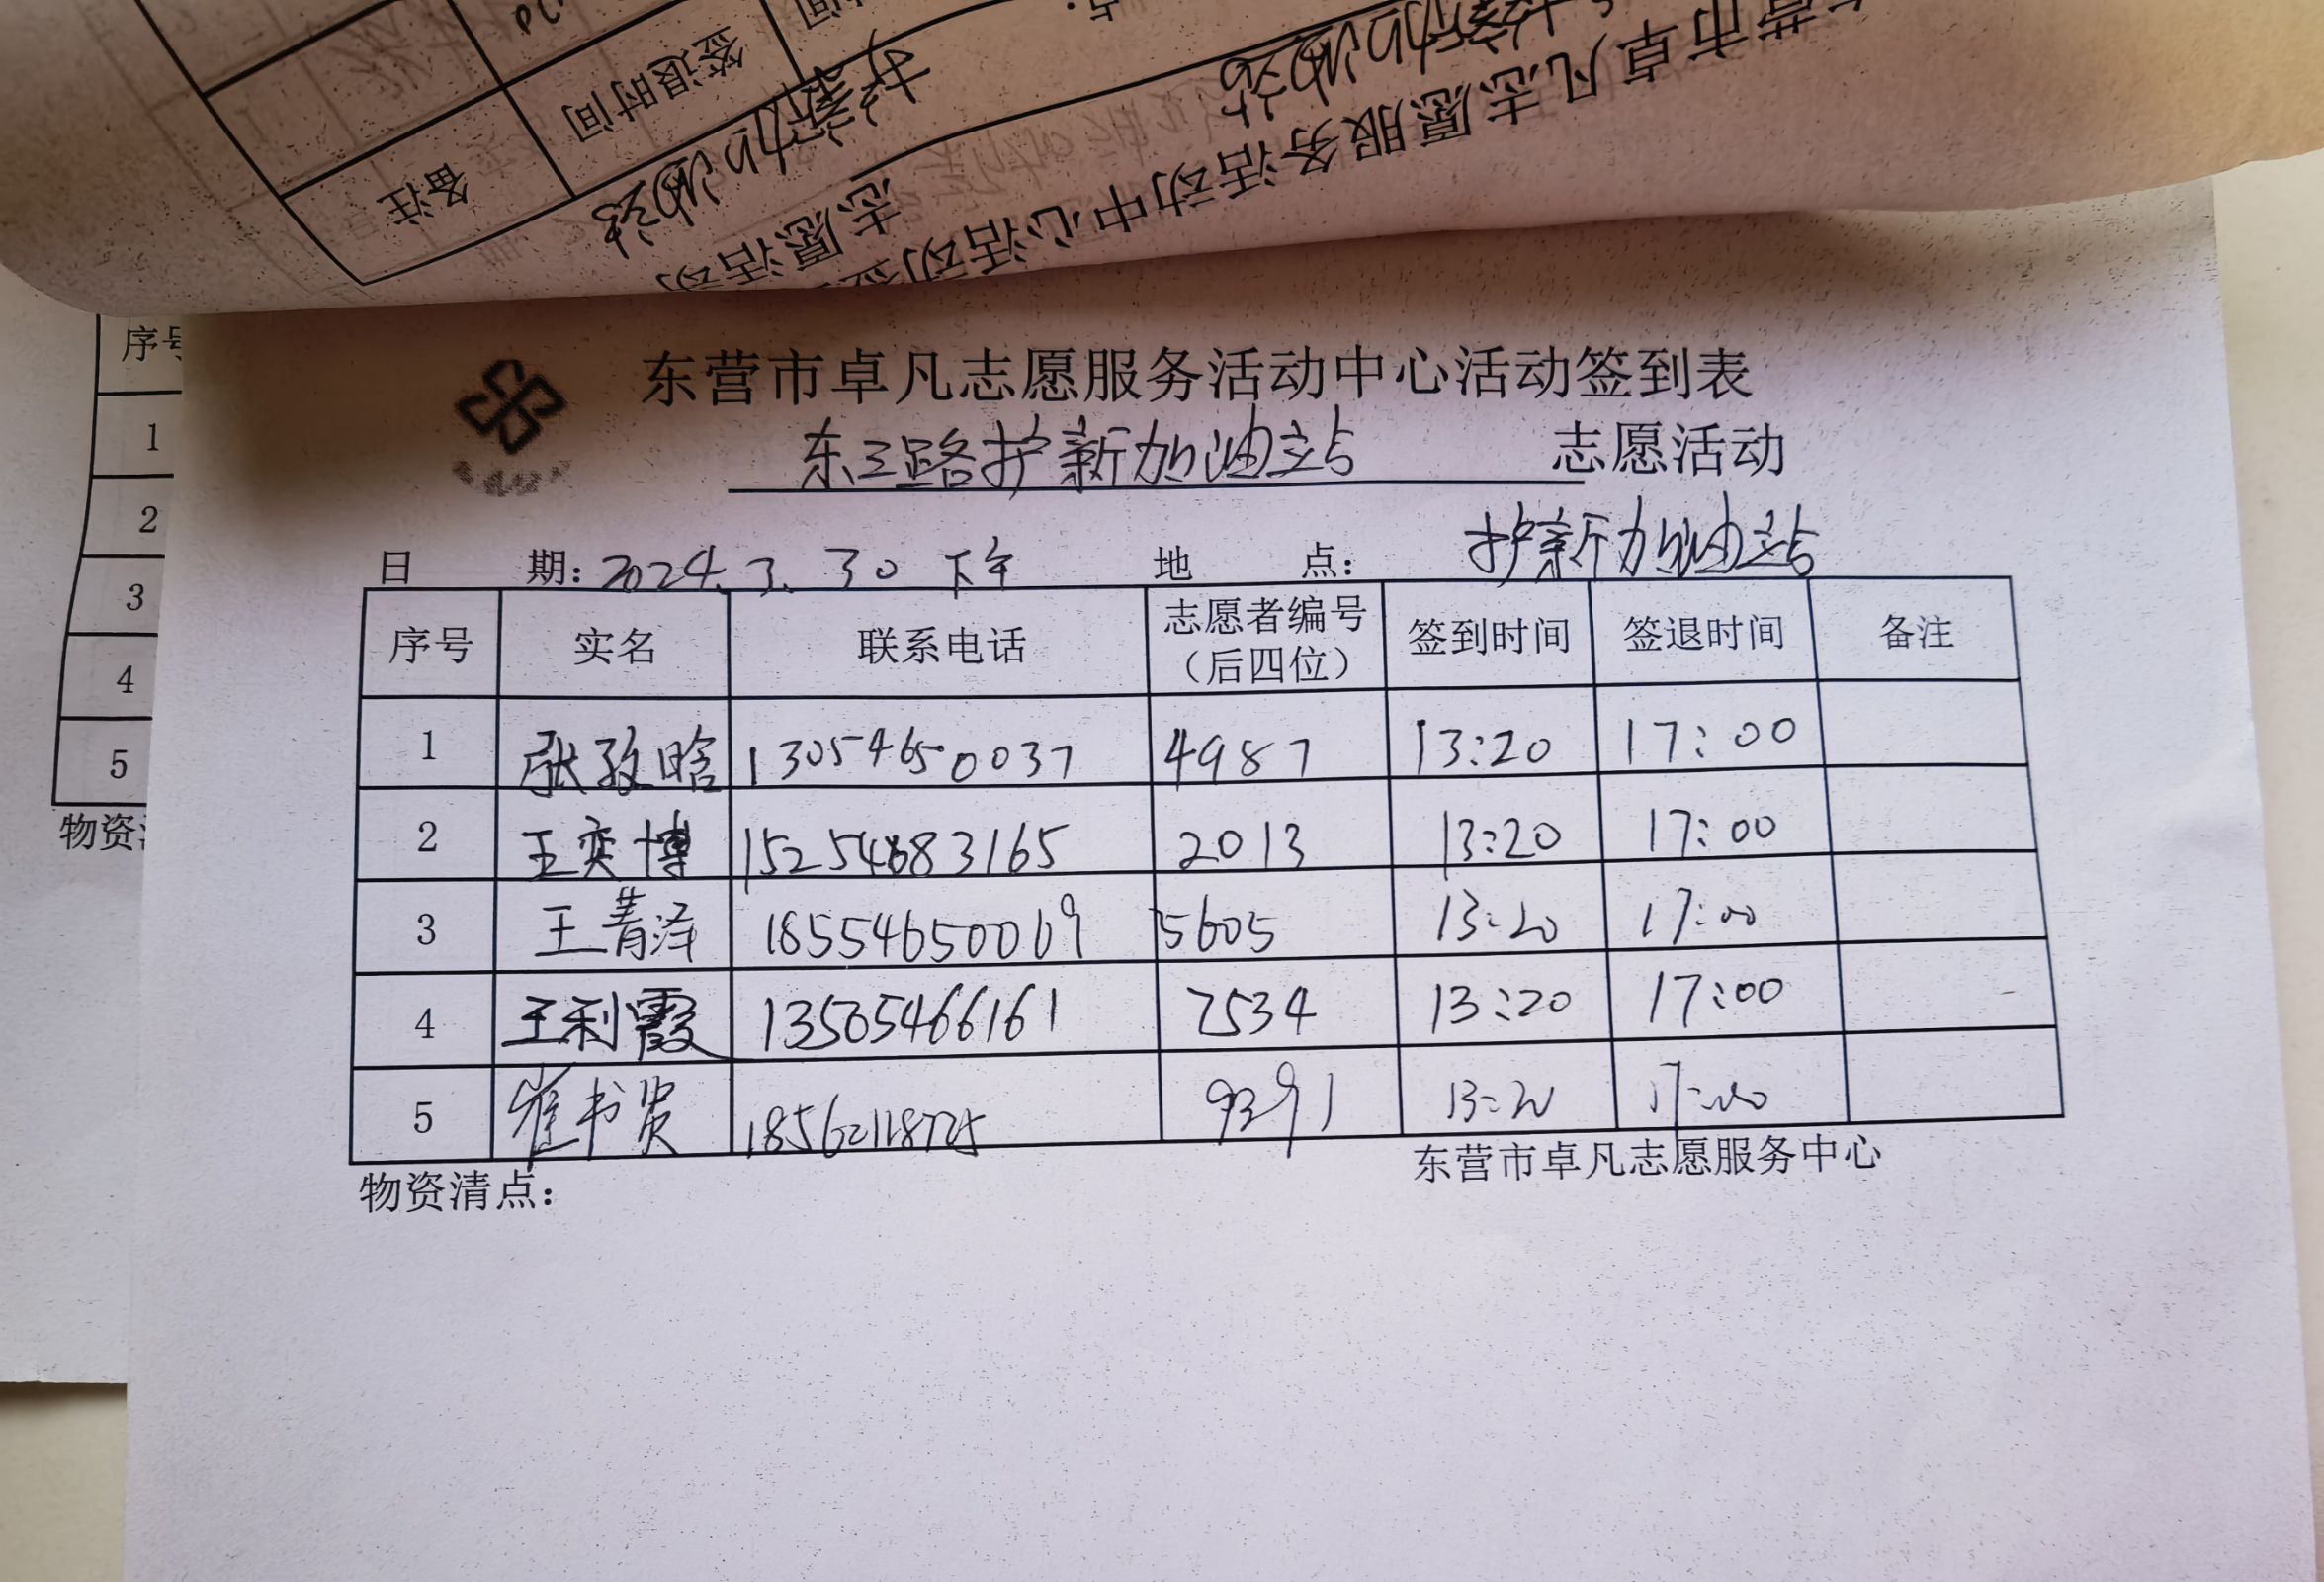 备注
签退时间
护新加油站
志愿活动
东营市卓凡志愿服务活动中心活动签到表
东三路护新加油站 志愿活动
日 期: 2024.3.30 下午 地 点: 护新加油站
序号 实名 联系电话 志愿者编号(后四位) 签到时间 签退时间 备注
1 张孜晗 13054650037 4987 13:20 17:00
2 王奕博 15254683165 2013 13:20 17:00
3 王菁泽 18554650069 5605 13:20 17:00
4 王利霞 13505466161 7534 13:20 17:00
5 崔书贤 18562118725 9391 13:20 17:00
物资清点: 东营市卓凡志愿服务中心
序号
1
2
3
4
5
物资